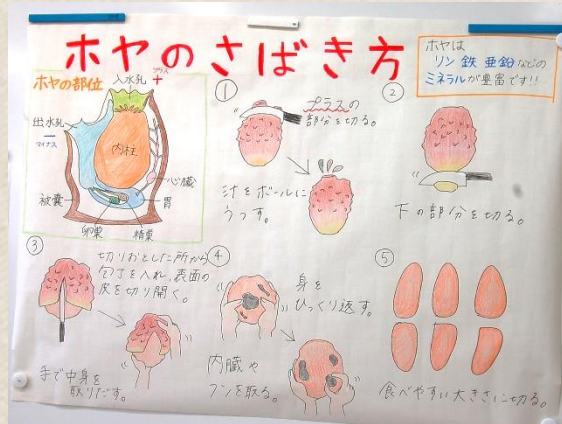 ホヤのさばき方
ホヤは
リン 鉄 亜鉛などの
ミネラルが豊富です!!
ホヤの部位
入水孔
プラス
+
出水孔
ー
マイナス
内柱
心臓
被嚢
胃
卵巣
精巣
①
プラスの
部分を切る。
汁をボールに
うつす。
②
下の部分を切る。
③
切りおとした所から
包丁を入れ、表面の
皮を切り開く。
手で中身を
取りだす。
④
身を
ひっくり返す。
内臓や
フンを取る。
⑤
食べやすい大きさに切る。